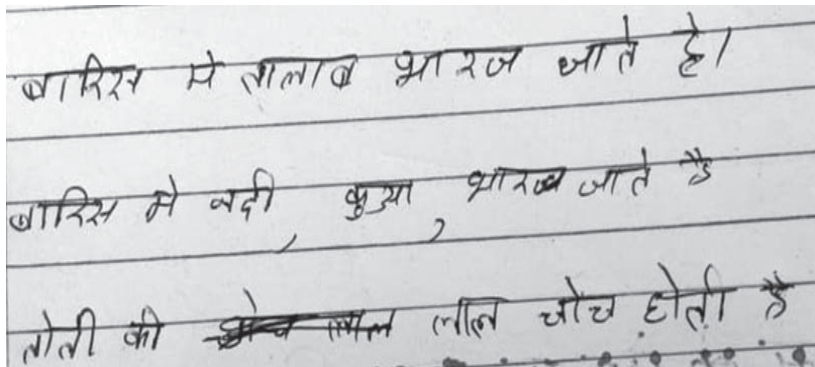 बारिस मे तालाब भारज जाते है।
बारिस मे नदी, कुआ, भारज जाते है
तोती की लाल चोच होती है